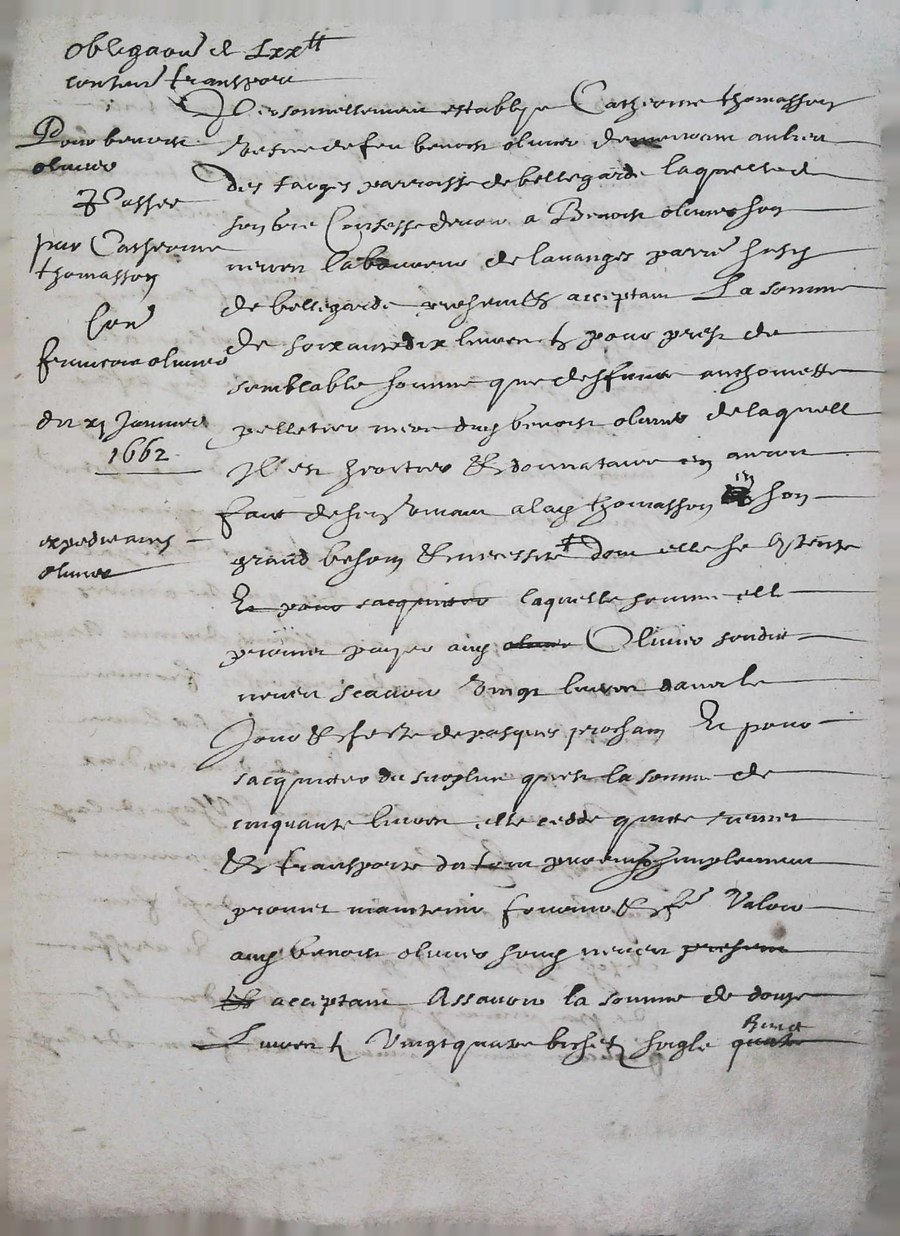 obligaon de Lxx tt
conten transport
Pour benoist
olivier
Passee
par Catherine
thomasson
Con
francois olivier
du xj Janvier
1662
expedie aud
olivier
Personnellement establye Catherine thomasson
vefve de feu benoist olivier demeurant au lieu
des farges parroisse de bellegarde laquelle de
son bre Confesse devoir a Benoist olivier son
nepveu laboureur de lavanges parre susd
de bellegarde present & acceptant La somme
de soixante dix livres tz pour prest de
semblable somme que deffunte anthoinette
pelletier mere dud benoist olivier de laquelle
Il est heritier & donnataire en auroit
faict de son vivant a lad thomasson en son
grand besoin & necessite dont elle se contente
Et pour sacquitter laquelle somme elle
promet payer aud olivier Olivier sondit
neveu scavoir vingt livres dans le
Jour & feste de pasques prochain Et pour
sacquitter du surplus quest la somme de
cinquante livres elle cedde quitte remet
& transporte du tout purement & simplement
promet maintenir fournir & fe Valoir
aud benoist olivier sond neveu present
& acceptant Assavoir la somme de douze
Livres tz Vingt quatre bichetz seigle quatre